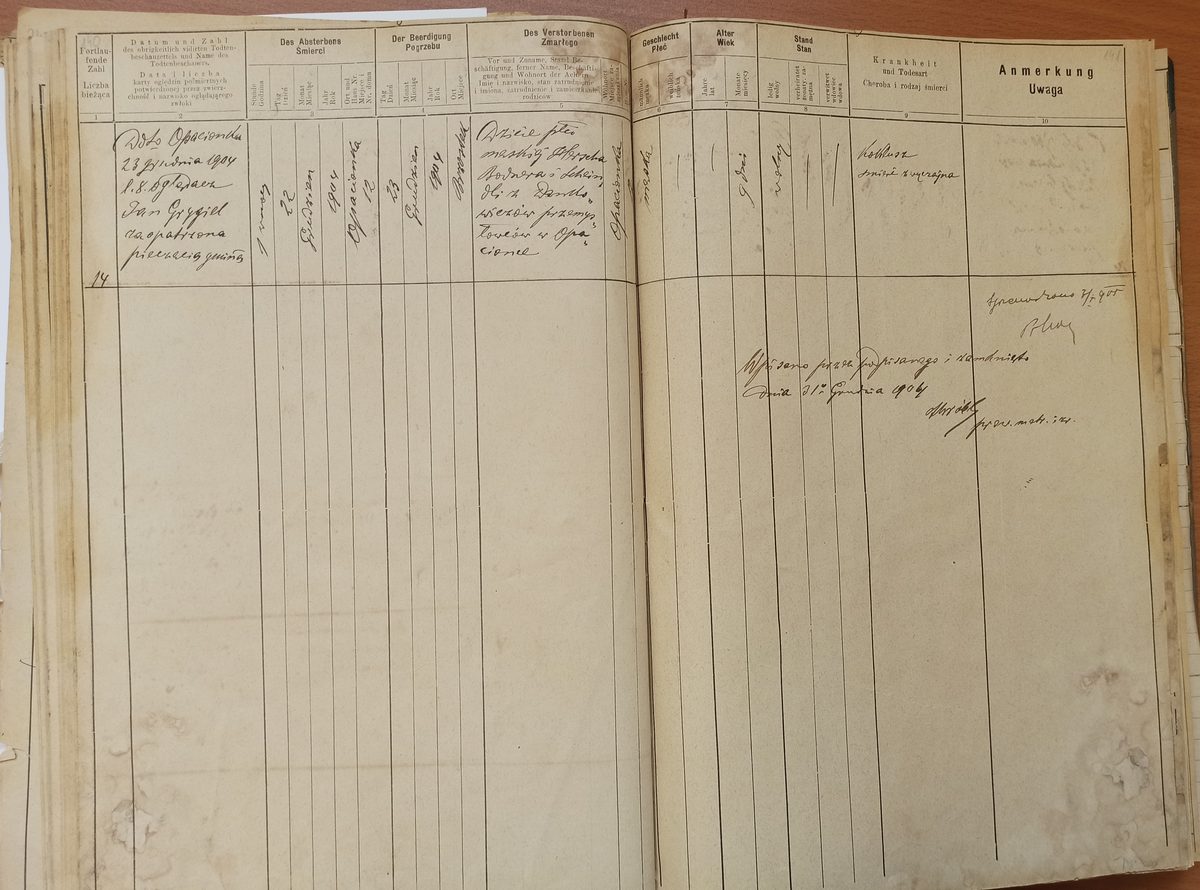 Fortlau-
fende
Zahl
Liczba
bieżąca
1
Datum und Zahl
des obrigkeitlich vidirten Todten-
beschauzettels und Name des
Todtenbeschauers.
Data i liczba
karty oględzin pośmiertnych
potwierdzonej przez zwierz-
chność i nazwisko oglądającego
zwłoki
2
Des Absterbens
Śmierci
Stunde
Godzina
Tag
Dzień
Monat
Miesiąc
Jahr
Rok
Ort und
Haus. Nr.
Miejsce i
Nr. domu
3
Der Beerdigung
Pogrzebu
Tag
Dzień
Monat
Miesiąc
Jahr
Rok
Ort
Miejsce
4
Des Verstorbenen
Zmarłego
Vor und Zuname, Stand Be-
schäftigung, ferner Name, Beschäfti-
gung und Wohnort der Aeltern
Imię i nazwisko, stan zatrudnienie
i imiona, zatrudnienie i zamieszkanie
rodziców
5
Geschlecht
Płeć
männlich
męska
weiblich
żeńska
6
Alter
Wiek
Jahre
lat
Monate
miesięcy
7
Stand
Stan
ledig
wolny
verheiratet
żonaty za-
mężna
verwitwet
wdowiec
wdowa
8
Krankheit
und Todesart
Choroba i rodzaj śmierci
9
Anmerkung
Uwaga
10
14
Ddto Opacionka
23 grudnia 1904
l. 8. Oglądacz
Jan Grygiel
zaopatrzona
pieczęcią gminną
22
Grudzien
1904
Opacionka
12
23
Grudzien
1904
Brzostek
Dziecie płci
męskiej Herscha
Bodnera i Schein-
dli z Danko-
wiczów przemys-
łowców w Opa-
cionce
Opacionka
męska
—
—
9 dni
wolny
—
—
Koklusz
śmierć zwyczajna
Sprawdzono 7/I 905
Wpisano przez podpisanego i zamknięto
Dnia 31go Grudnia 1904
prow. metr. izr.